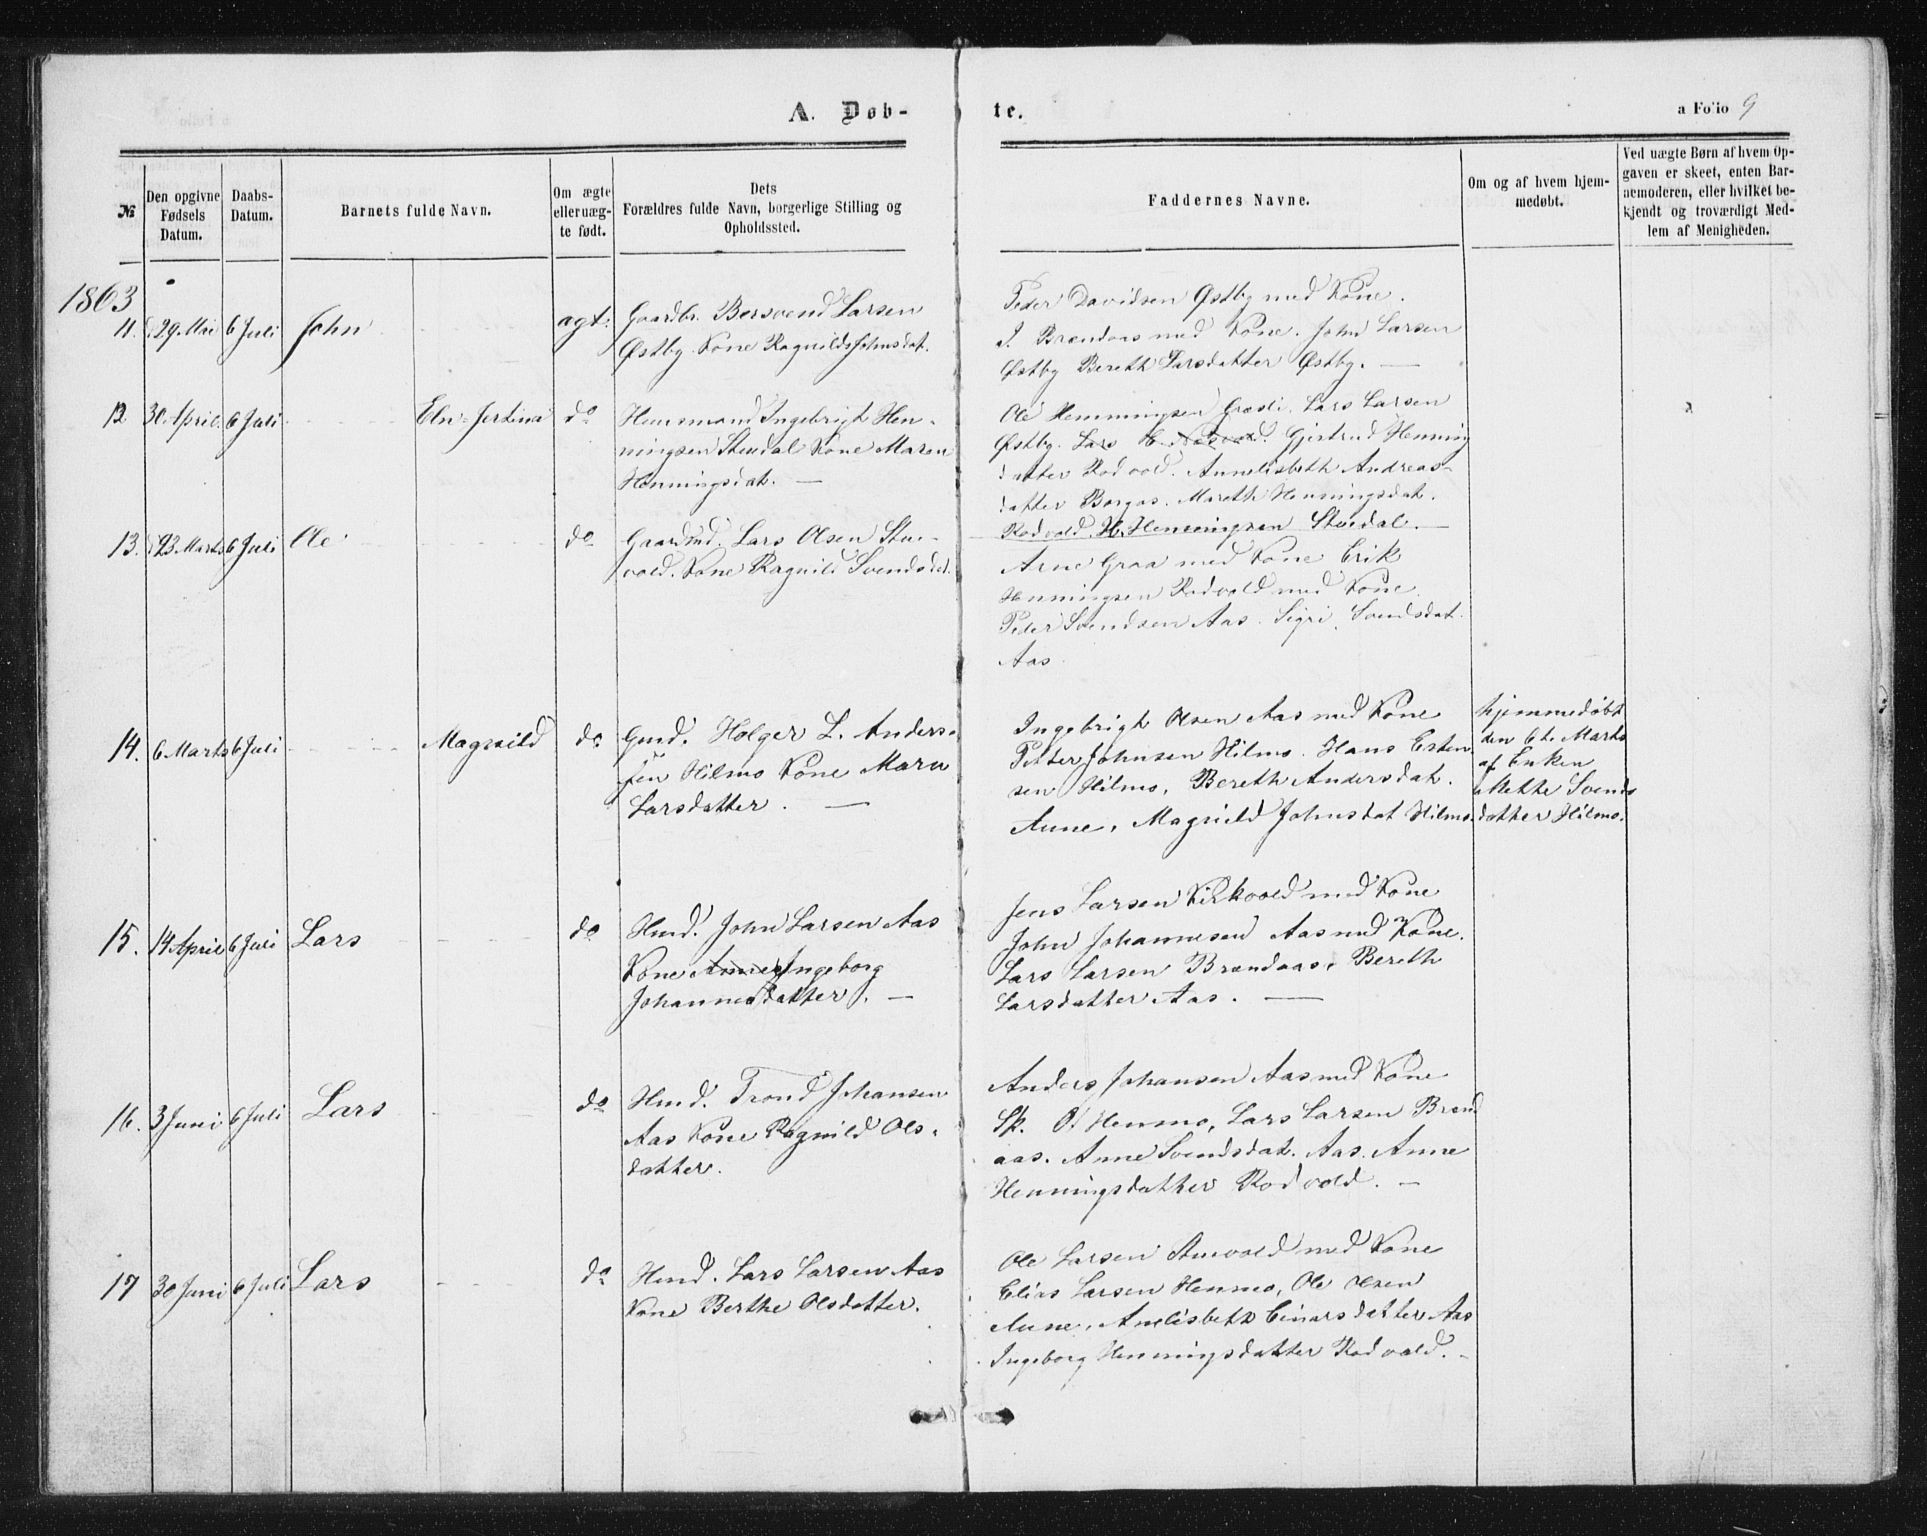 A. Døb-
te.
a Fo'io 9
№
Den opgivne Fødsels Datum.
Daabs-Datum.
Barnets fulde Navn.
Om ægte eller uæg-te født.
Dets
Forældres fulde Navn, borgerlige Stilling og
Opholdssted.
Faddernes Navne.
Om og af hvem hjem-
medøbt.
Ved uægte Børn af hvem Op-
gaven er skeet, enten Bar-
nemoderen, eller hvilket be-
kjendt og troværdigt Med-
lem af Menigheden.
1863
11. 29 Mai 6 Juli John ægt:
Gaardbr. Bersvend Larsen
Østby Kone Ragnild Johnsdat.
Peder Davidsen Østby med Kone.
J. Brændaas med Kone. John Larsen
Østby Bereth Larsdatter Østby. —
12 30 April 6 Juli Eln-Jertina do
Huusmand Ingebrigt Hen-
ningsen Stuedal Kone Maren
Henningsdat. —
Ole Hemmingsen Græsli. Lars Larsen
Østby. Lars Gjertrud Henning
datter Rodvold. Annelisbeth Andreas-
datter Borgos. Mareth Henningsdat.
Rodvold. H. Henningsen Stuedal. —
13. 23 Marts 6 Juli Ole do
Gaardmd. Lars Olsen Stue-
vold. Kone Ragnild Svendsdat.
Arne Graa med Kone Erik
Henningsen Rodvold med Kone
Peder Svendsen Aas. Sigri Svendsdat.
Aas.
14. 6 Marts 6 Juli Magnild do
Gmd. Holger L. Anders-
sen Hilmo Kone Maren
Larsdatter. —
Ingebrigt Olsen Aas med Kone
Petter Johnsen Hilmo. Hans Esten
sen Hilmo, Bereth Andersdat.
Aune, Magnild Johnsdat Hilmo.
hjemmedøbt
den 6te Marts
af Enken
Mette Svends
datter Hilmo.
15. 14 April 6 Juli Lars do
Hmd. John Larsen Aas
Kone Anne Ingeborg
Johannesdatter. —
Jens Larsen Kirkvold med Kone
John Johannesen Aas med Kone.
Lars Larsen Brændaas. Bereth
Larsdatter Aas. —
16. 3 Juni 6 Juli Lars do
Hmd. Trond Johansen
Aas Kone Ragnild Ols-
datter.
Anders Johansen Aas med Kone
Sk. O. Henmo, Lars Larsen Brænd
aas. Anne Svendsdat. Aas. Anne
Henningsdatter Rodvold. —
17 30 Juni 6 Juli Lars do
Hmd. Lars Larsen Aas
Kone Berthe Olsdatter.
Ole Larsen Stuevold med Kone
Elias Larsen Henmo, Ole Olsen
Aune, Anelisbeth Einarsdatter Aas
Ingeborg Henningsdatter Rodvold. —